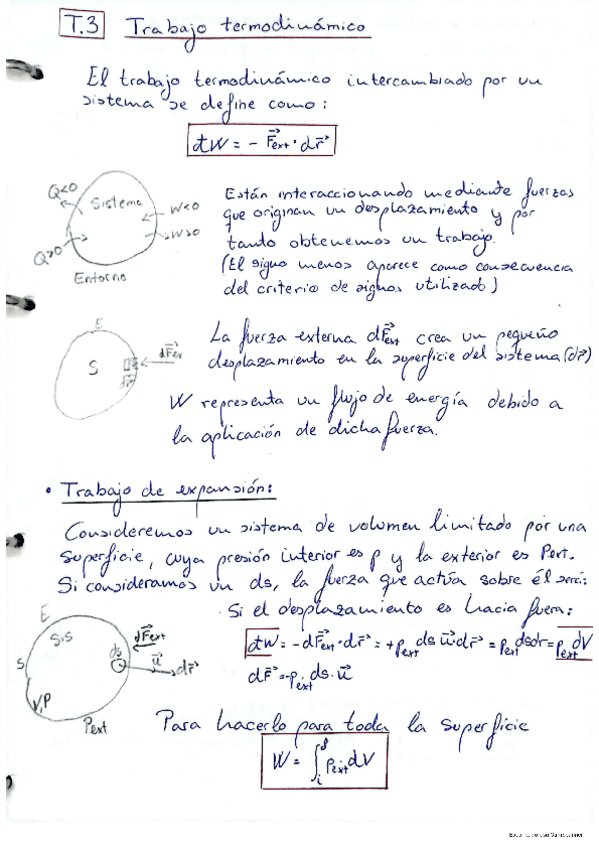 T.3 Trabajo termodinámico
El trabajo termodinámico intercambiado por un
sistema se define como:
đW = - F⃗ext · dr⃗
Q<0
Sistema
W<0
W>0
Q>0
Entorno
Están interaccionando mediante fuerzas
que originan un desplazamiento y por
tanto obtenemos un trabajo.
(El signo menos aparece como consecuencia
del criterio de signos utilizado)
E
S
dF⃗ex
dr⃗
La fuerza externa dF⃗ext crea un pequeño
desplazamiento en la superficie del sistema (dr⃗)
W representa un flujo de energía debido a
la aplicación de dicha fuerza.
• Trabajo de expansión:
Consideremos un sistema de volumen limitado por una
superficie, cuya presión interior es p y la exterior es Pext.
Si consideramos un ds, la fuerza que actúa sobre él será:
E
Sis
S
ds
dF⃗ext
u⃗
dr⃗
V,P
Pext
· Si el desplazamiento es hacia fuera:
đW = - dF⃗ext · dr⃗ = + pext ds u⃗ dr⃗ = pext dsdr = pext dV
dF⃗ = -pext ds · u⃗
Para hacerlo para toda la superficie
W = ∫ᵢᶠ pext dV